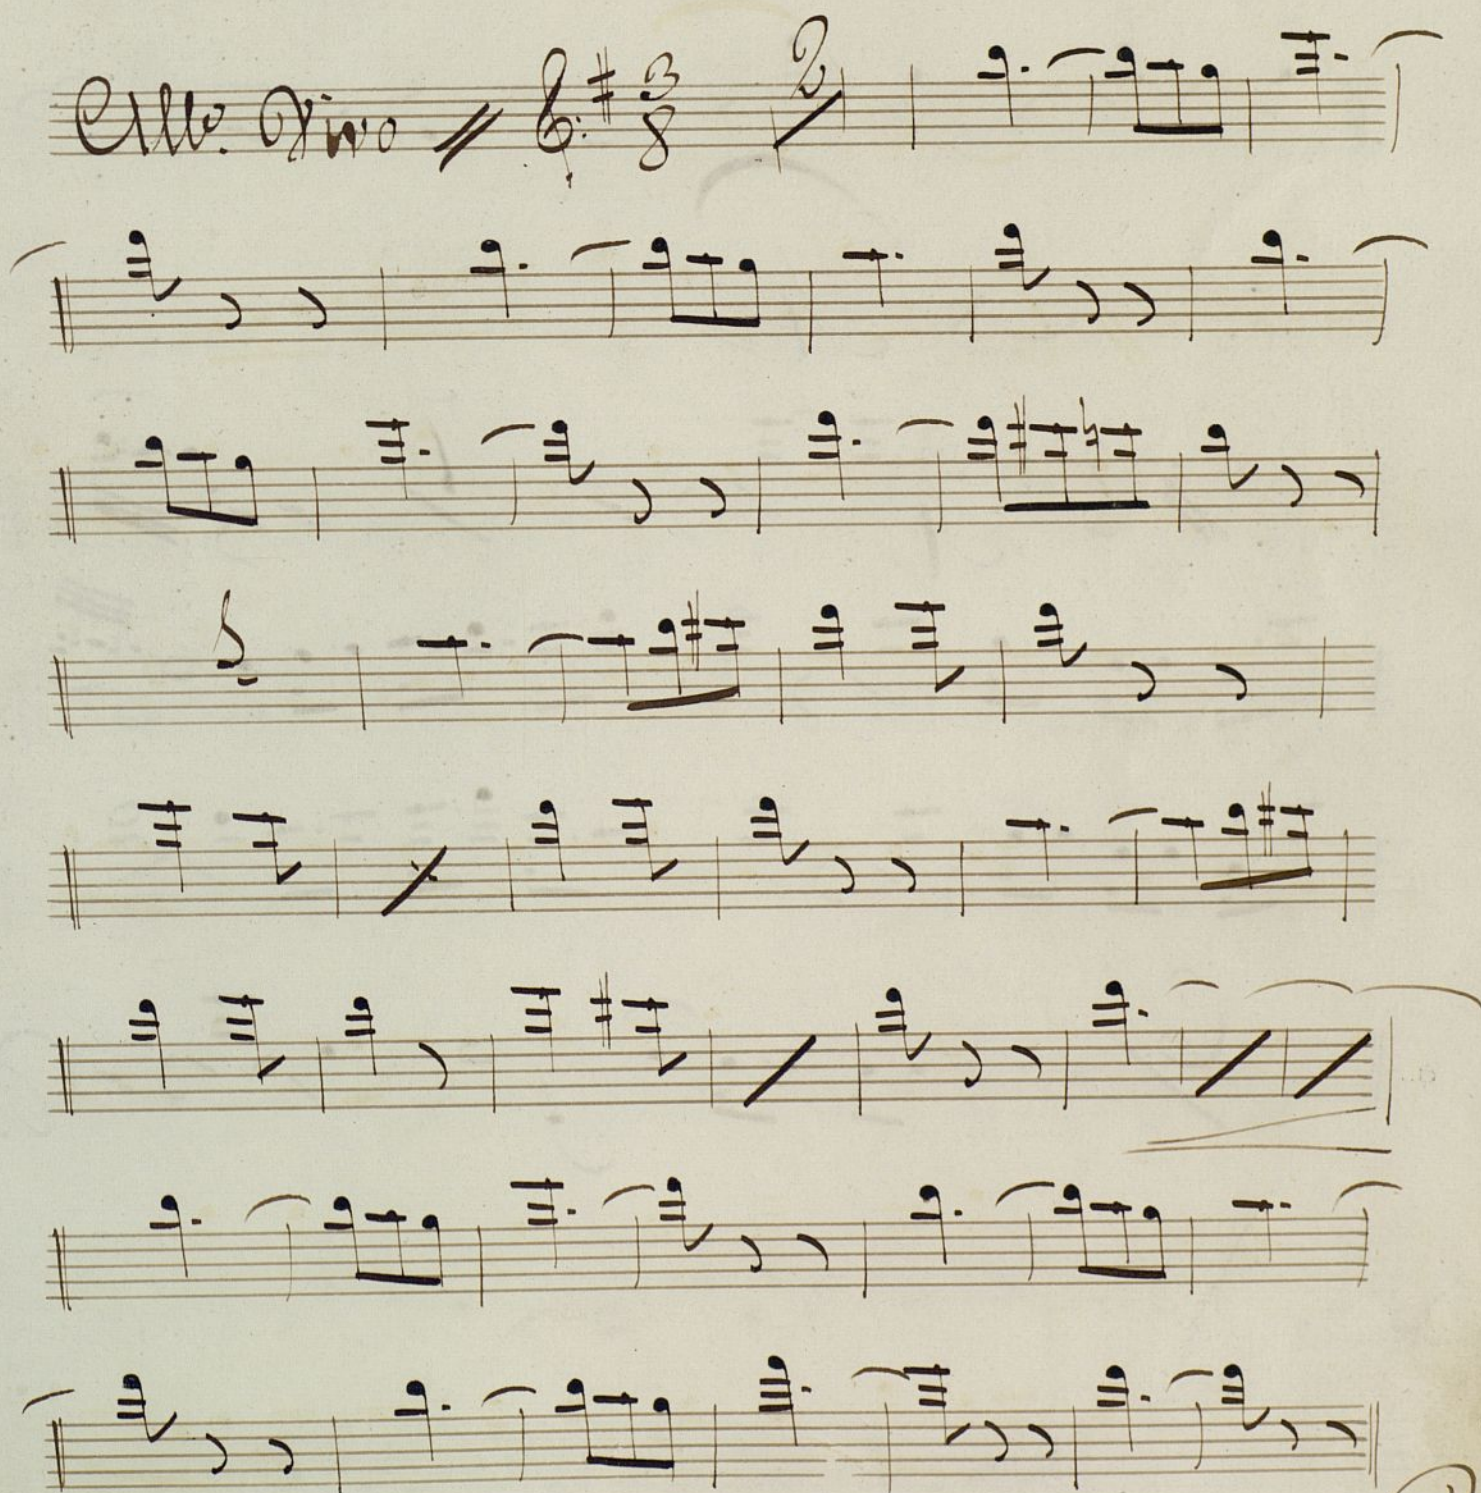 Allo. Vivo // 3/8 2